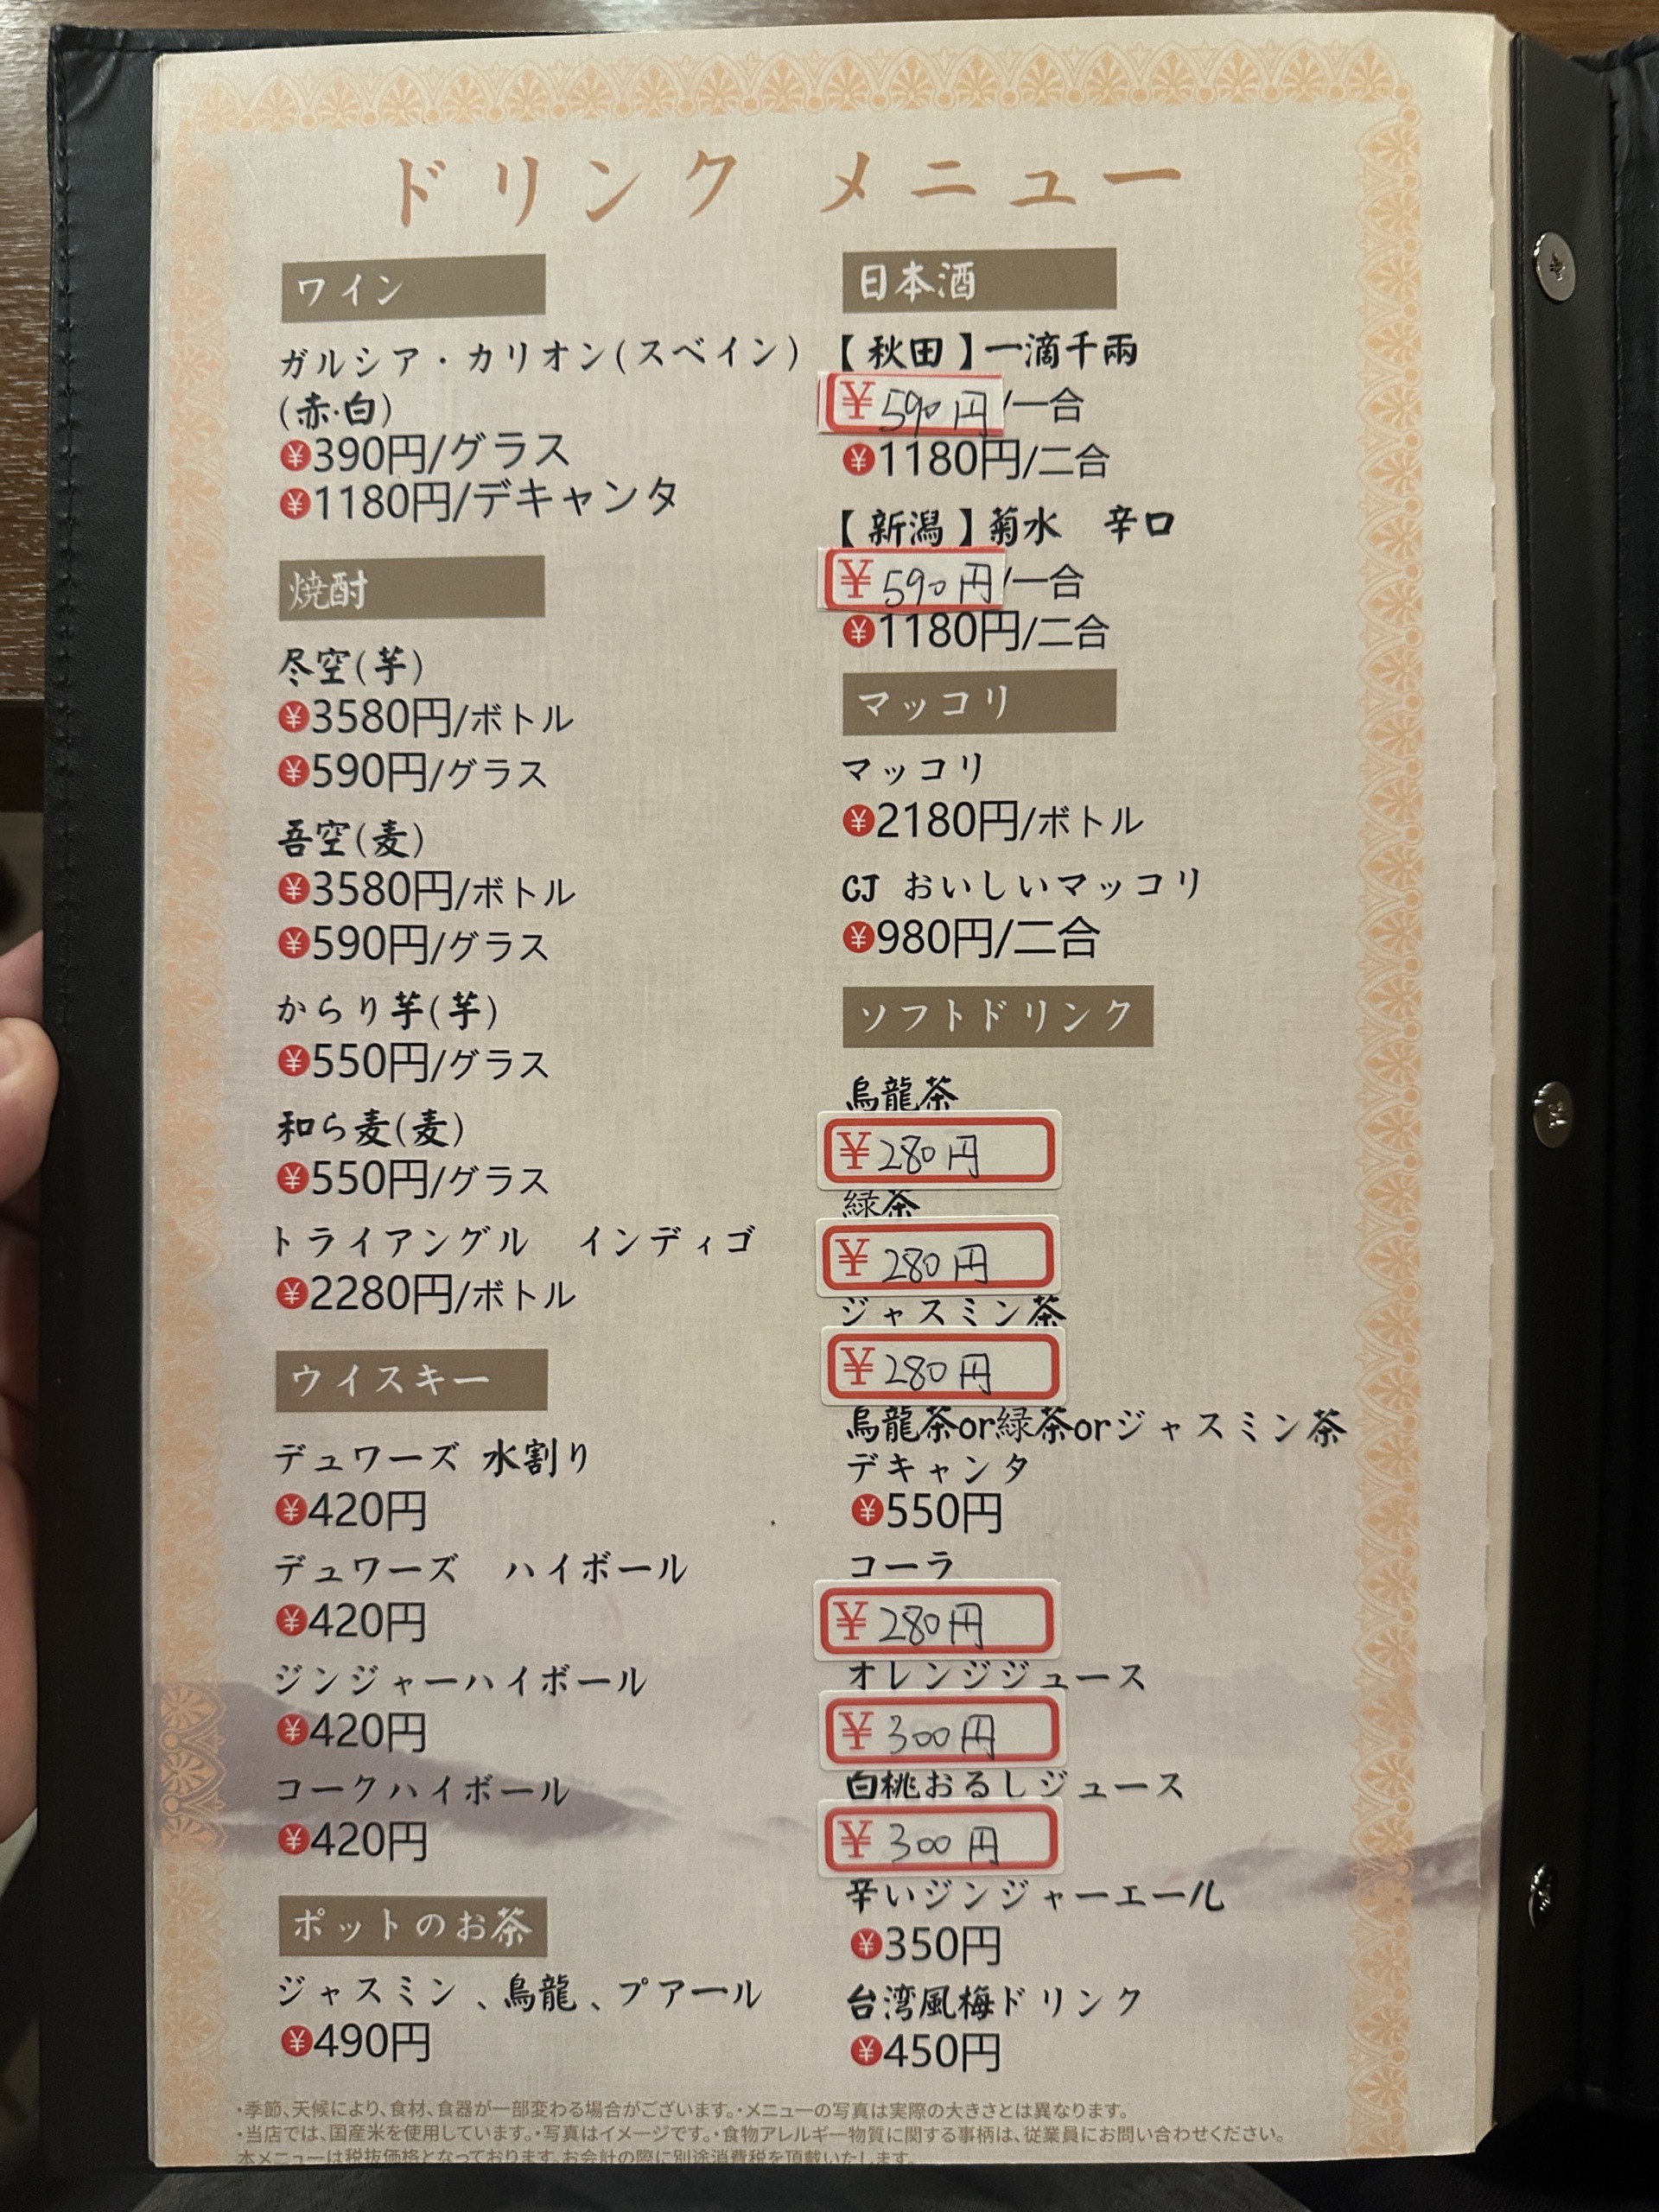 ドリンク メニュー
ワイン
ガルシア・カリオン(スペイン)
(赤・白)
¥390円/グラス
¥1180円/デキャンタ
焼酎
尽空(芋)
¥3580円/ボトル
¥590円/グラス
吾空(麦)
¥3580円/ボトル
¥590円/グラス
からり芋(芋)
¥550円/グラス
和ら麦(麦)
¥550円/グラス
トライアングル インディゴ
¥2280円/ボトル
ウイスキー
デュワーズ 水割り
¥420円
デュワーズ ハイボール
¥420円
ジンジャーハイボール
¥420円
コークハイボール
¥420円
ポットのお茶
ジャスミン、烏龍、プアール
¥490円
日本酒
【秋田】一滴千両
¥590円/一合
¥1180円/二合
【新潟】菊水 辛口
¥590円/一合
¥1180円/二合
マッコリ
マッコリ
¥2180円/ボトル
CJ おいしいマッコリ
¥980円/二合
ソフトドリンク
烏龍茶
¥280円
緑茶
¥280円
ジャスミン茶
¥280円
烏龍茶or緑茶orジャスミン茶
デキャンタ
¥550円
コーラ
¥280円
オレンジジュース
¥300円
白桃おろしジュース
¥300円
辛いジンジャーエール
¥350円
台湾風梅ドリンク
¥450円
・季節、天候により、食材、食器が一部変わる場合がございます。・メニューの写真は実際の大きさとは異なります。
・当店では、国産米を使用しています。・写真はイメージです。・食物アレルギー物質に関する事柄は、従業員にお問い合わせください。
本メニューは税抜価格となっております。お会計の際に別途消費税を頂戴いたします。